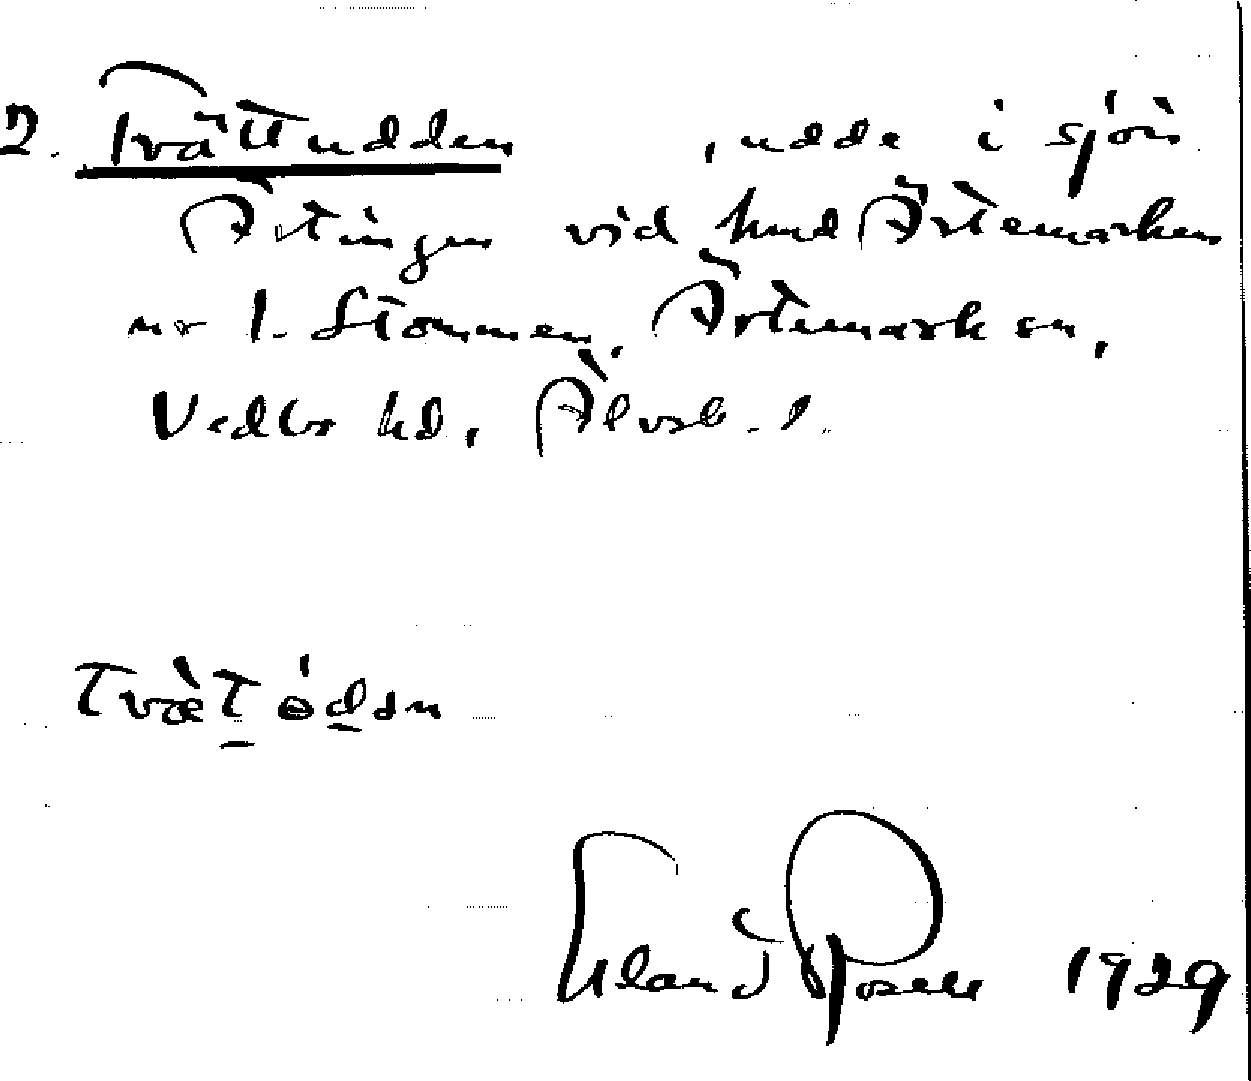 2. Tvättudden , udde i sjön
Ärtingen vid hmd Ärtemarken
nr 1. Stommen, Ärtemarks sn,
Vedbo hd, Älvsb. l.
Tvæt ödən
Erland Rosell 1929